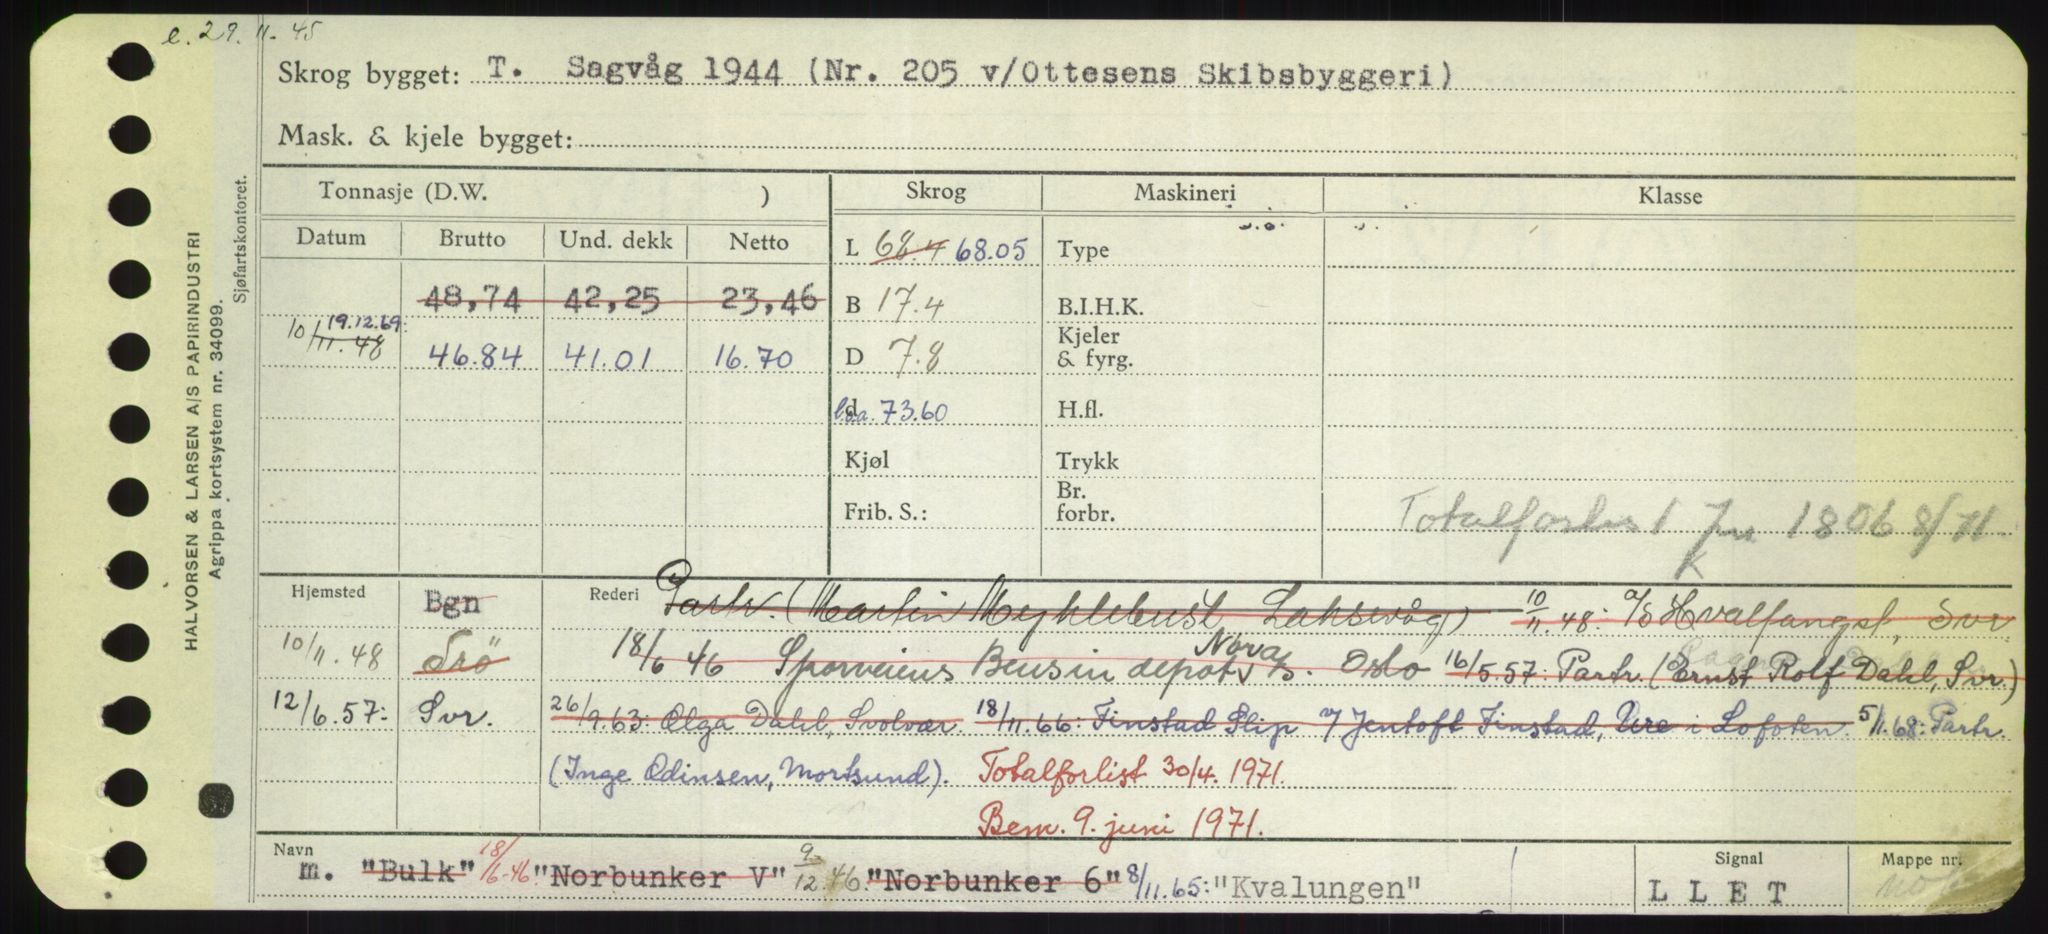 e. 29. 11. 45
Skrog bygget: T. Sagvåg 1944 (Nr. 205 v/Ottesens Skibsbyggeri)
Mask. & kjele bygget:
Tonnasje (D.W. )
Skrog
Maskineri
Klasse
Datum
Brutto
Und. dekk
Netto
L 68.4 68.05
Type
48,74 42,25 23,46
B 17.4
B.I.H.K.
19.12.69:
10/11.48
46.84 41.01 16.70
D 7.8
Kjeler
& fyrg.
d
l.oa. 73.60
H.fl.
Kjøl
Trykk
Frib. S.:
Br.
forbr.
Totalforlist 1806 8/71
Hjemsted Bgn Rederi Partr. (Martin Myklebust Laksevåg) 10/11.48: A/S Hvalfangst, Svr
10/11.48 18/6 46 Sporveiens Bensin depot Nova A/S. Oslo 16/5.57: Partr. (Ernst Rolf Dahl, Svr.)
12/6.57: Svr. 26/9.63: Olga Dahl, Svolvær. 18/11.66: Finstad Slip v/ Jentoft Finstad, Ure i Lofoten. 5/11.68: Partr.
(Inge Odinsen, Mortsund). Totalforlist 30/4. 1971.
Bem. 9. juni 1971.
Navn
m. "Bulk" 18/6-46 "Norbunker V" 9/12.46. "Norbunker 6" 8/11.65: "Kvalungen"
Signal
L L E T
Mappe nr.
HALVORSEN & LARSEN A/S PAPIRINDUSTRI
Agrippa kortsystem nr. 34099.
Sjøfartskontoret.